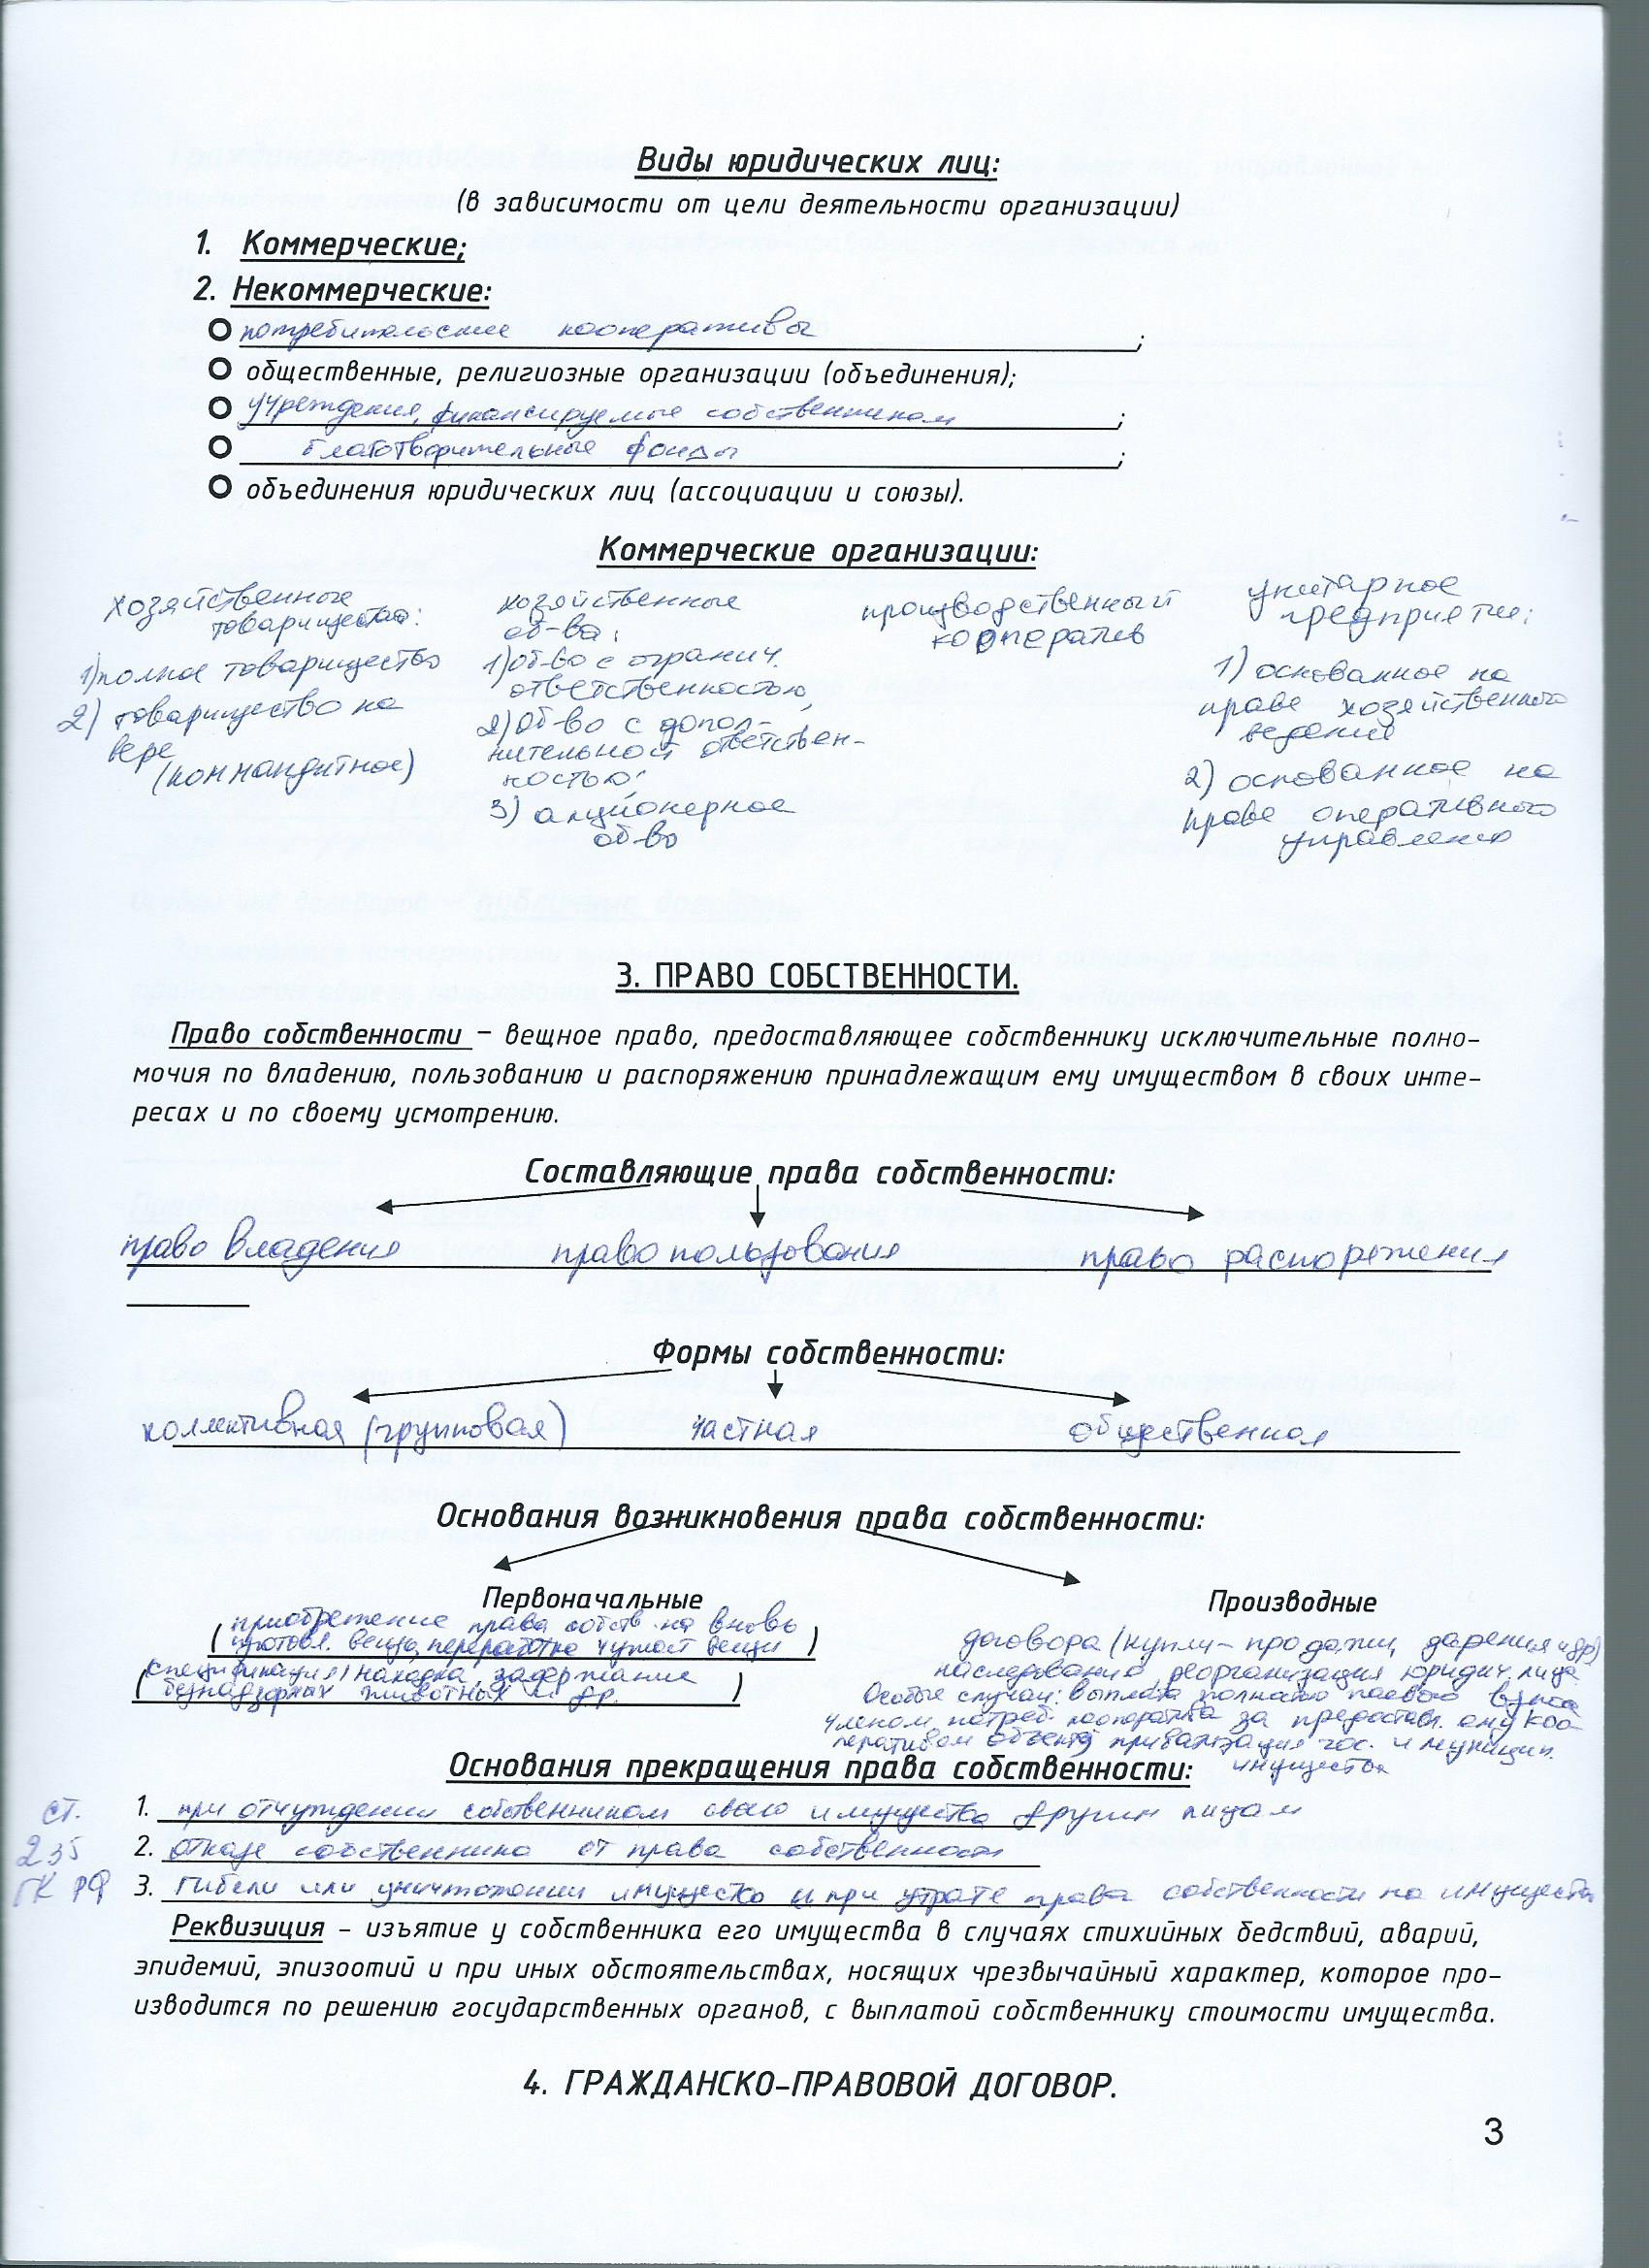 Виды юридических лиц:
(в зависимости от цели деятельности организации)
1. Коммерческие;
2. Некоммерческие:
потребительские кооперативы ;
общественные, религиозные организации (объединения);
учреждения, финансируемые собственником ;
благотворительные фонды ;
объединения юридических лиц (ассоциации и союзы).
Коммерческие организации:
хозяйственные
товарищества:
1) полное товарищество
2) товарищество на
вере
(коммандитное)
хозяйственные
об-ва:
1) об-во с огранич.
ответственностью,
2) Об-во с допол-
нительной ответствен-
ностью;
3) акционерное
об-во
производственный
кооператив
унитарное
предприятие:
1) основанное на
праве хозяйственного
ведения
2) основанное на
праве оперативного
управления
3. ПРАВО СОБСТВЕННОСТИ.
Право собственности – вещное право, предоставляющее собственнику исключительные полно-
мочия по владению, пользованию и распоряжению принадлежащим ему имуществом в своих инте-
ресах и по своему усмотрению.
Составляющие права собственности:
право владения право пользования право распоряжения
Формы собственности:
коллективная (групповая) частная общественная
Основания возникновения права собственности:
Первоначальные
(приобретение права собств на вновь
изготовл. вещь, переработка чужой вещи)
(спецификация) находка, задержание
безнадзорных животных и др.)
Производные
договора (купли-продажи, дарения и др)
наследование, реорганизация юридич. лица
Особые случаи: выплата полностью паевого взноса
членом потреб. кооператива за предоставл. ему коо-
перативом объекта приватизация гос. и муницип.
имущества
Основания прекращения права собственности:
ст.
235
ГК РФ
1. при отчуждении собственником своего имущества другим лицам
2. отказе собственника от права собственности
3. гибели или уничтожении имущества и при утрате права собственности на имущество
Реквизиция – изъятие у собственника его имущества в случаях стихийных бедствий, аварий,
эпидемий, эпизоотий и при иных обстоятельствах, носящих чрезвычайный характер, которое про-
изводится по решению государственных органов, с выплатой собственнику стоимости имущества.
4. ГРАЖДАНСКО-ПРАВОВОЙ ДОГОВОР.
3